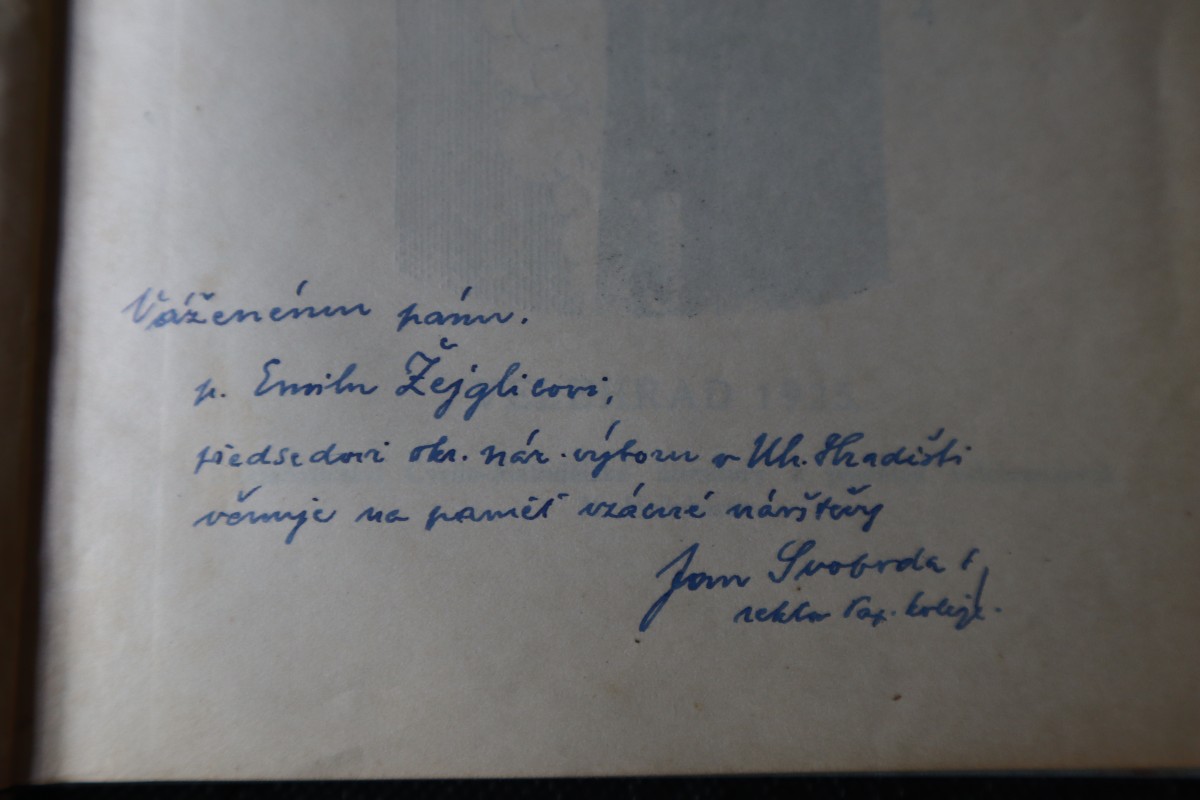 Váženému pánu.
p. Emilu Žejglicovi,
předsedovi okr. nár. výboru v Uh. Hradišti
věnuje na paměť vzácné návštěvy
Jan Svoboda
rektor Pap. koleje.